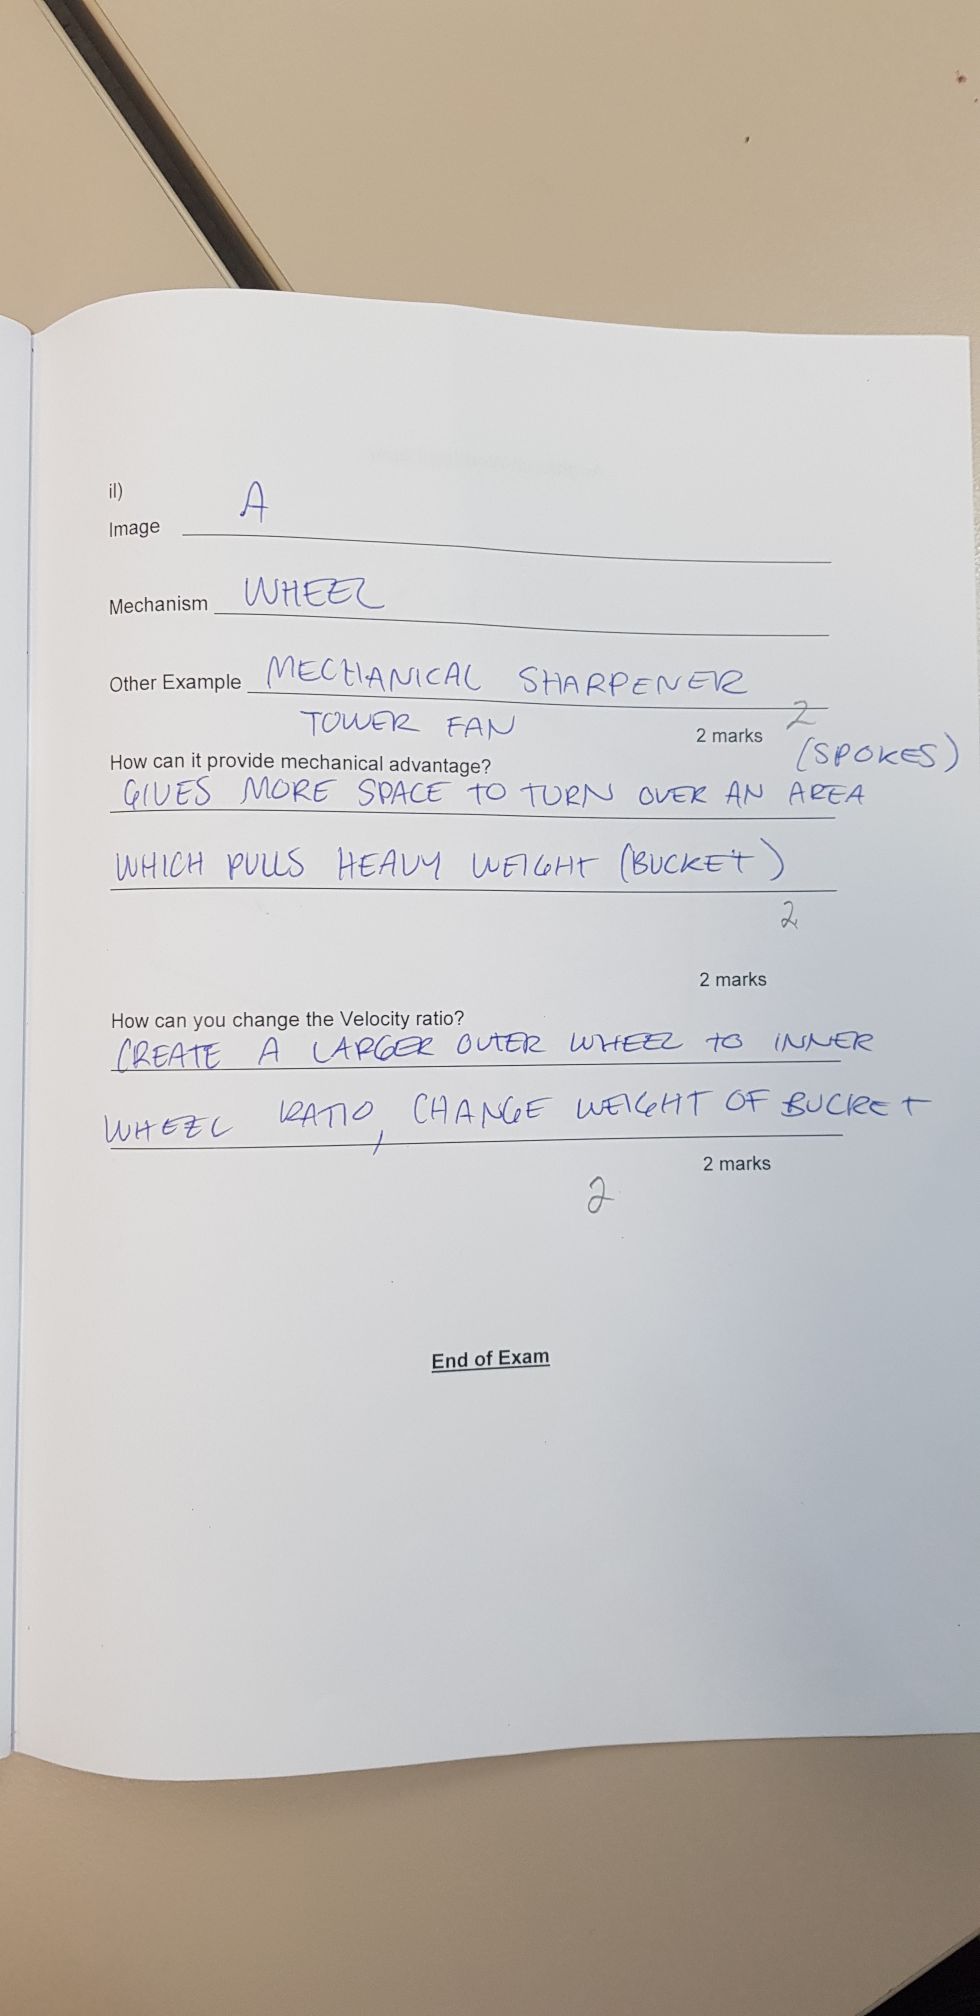 il)
Image A
Mechanism WHEEL
Other Example MECHANICAL SHARPENER
TOWER FAN 2 marks 2
(SPOKES)
How can it provide mechanical advantage?
GIVES MORE SPACE TO TURN OVER AN AREA
WHICH PULLS HEAVY WEIGHT (BUCKET)
2
2 marks
How can you change the Velocity ratio?
CREATE A LARGER OUTER WHEEL TO INNER
WHEEL RATIO, CHANGE WEIGHT OF BUCKET
2 marks
2
End of Exam